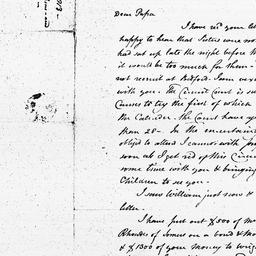 Dear Papa
I have recd your let
happy to hear that Sisters were no
had sat up late the night before
it would be too much for them -
not recruit at Bedford. I am very
with you. The Circuit Court is
Causes to try the first of which
the Calendar. The Court have
than 20 - In the uncertain
obliged to attend I cannot with
soon as I get rid of this Circuit
some time with you & bringing
Children to see you.
I saw William just now &
letter.
I have put out $500 of M
of James on a bond & Mo
& $1300 of your money to